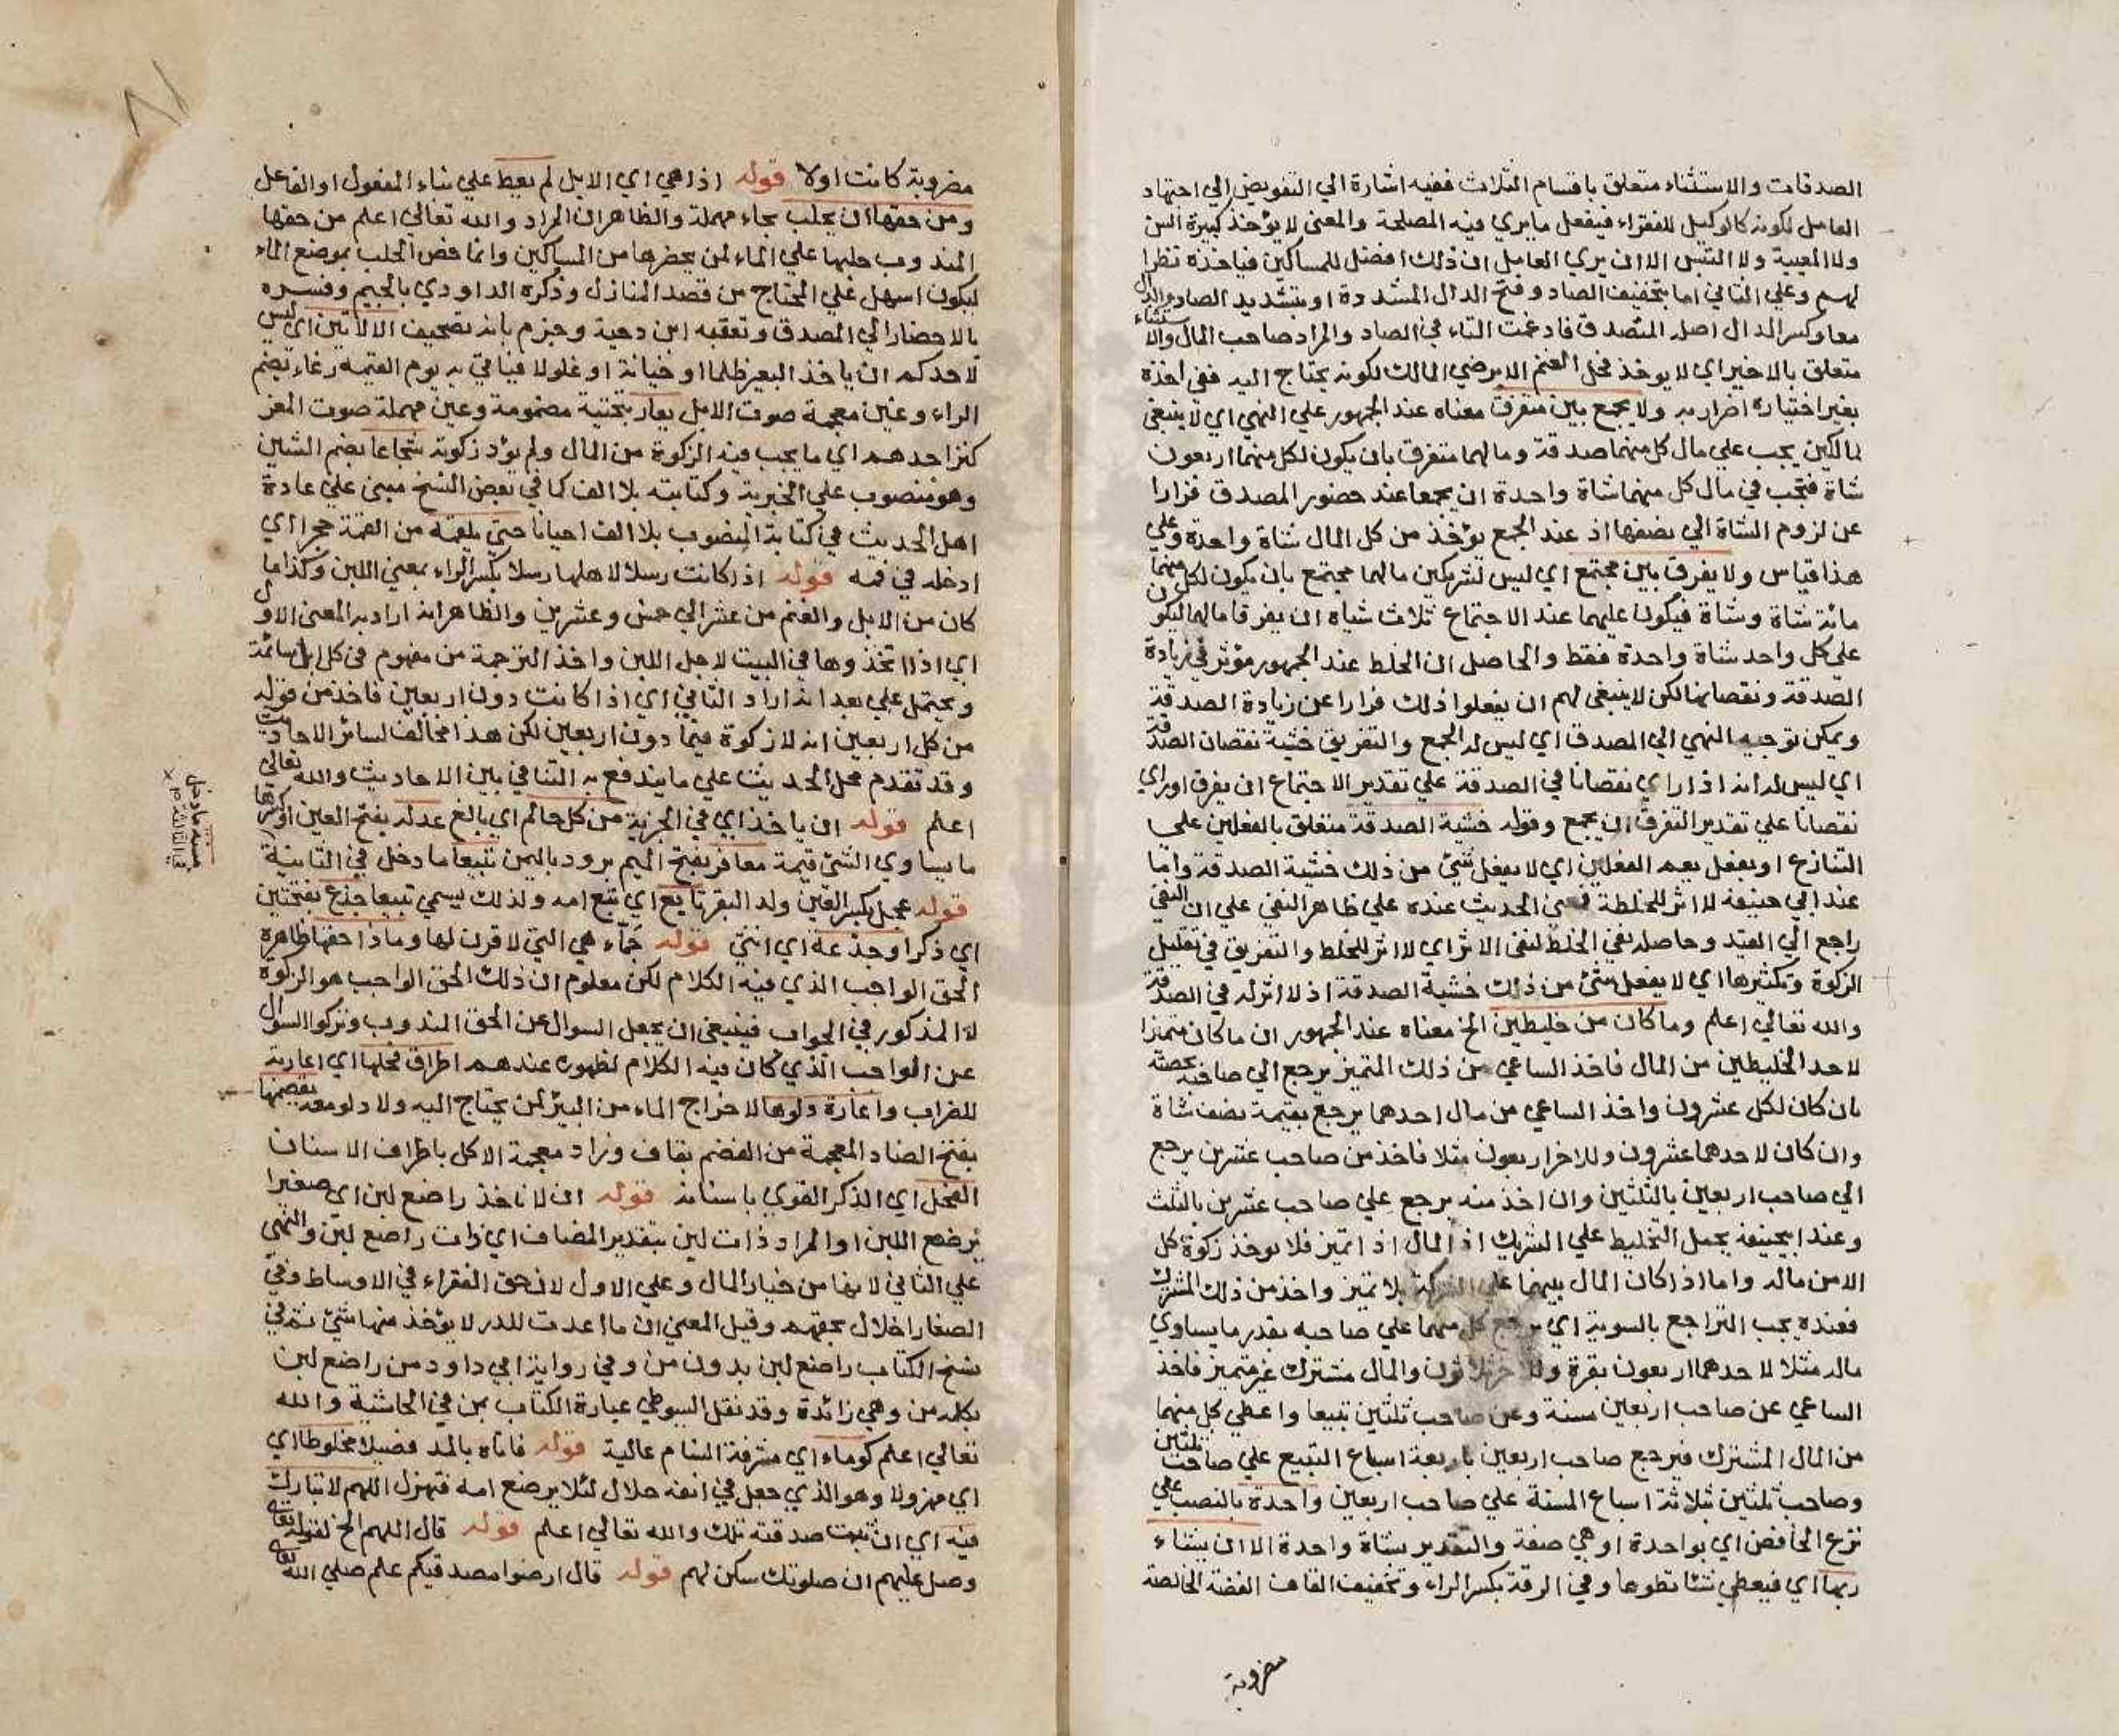 الصدقات والاستثناء متعلق باقسام الثلاث ففيه اشارة الي التفويض الي اجتهاد
العامل لكونه كالوكيل للفقراء فيفعل مايري فيه المصلحة والمعني لا يؤخذ كبيرة السن
ولا المعيبة ولا التيس الا ان يري العامل ان ذلك افضل للمساكين فياخذه نظرا
لهم وعلي الثاني اما بتخفيف الصاد وفتح الدال المشددة او بتشديد الصاد والدال
معا وكسر الدال اصله المتصدق فادغمت التاء في الصاد والمراد صاحب المال والاستثناء
متعلق بالاخير اي لا يوخذ فحل الغنم الا برضي المالك لكونه يحتاج اليه ففي اخذه
بغير اختياره اضرار به ولا يجمع بين متفرق معناه عند الجمهور علي النهي اي لا ينبغي
لمالكين يجب علي مال كل منهما صدقة ومالهما متفرق بان يكون لكل منهما اربعون
شاة فتجب في مال كل منهما شاة واحدة ان يجمعا عند حضور المصدق فرارا
عن لزوم الشاة الي نصفها اذ عند الجمع يؤخذ من كل المال شاة واحدة وعلي
هذا قياس ولا يفرق بين مجتمع اي ليس لشريكين مالهما مجتمع بان يكون لكل منهما
مائة شاة وشاة فيكون عليهما عند الاجتماع ثلاث شياه ان يفرقا مالهما ليكون
علي كل واحد شاة واحدة فقط والحاصل ان الخلط عند الجمهور مؤثر في زيادة
الصدقة ونقصانها لكن لا ينبغي لهم ان يفعلوا ذلك فرارا عن زيادة الصدقة
ويمكن توجيه النهي الي المصدق اي ليس له الجمع والتفريق خشية نقصان الصدقة
اي ليس له انه اذا راي نقصانا في الصدقة علي تقدير الاجتماع ان يفرق او راي
نقصانا علي تقدير التفرق ان يجمع وقوله خشية الصدقة متعلق بالفعلين علي
التنازع او بفعل يعم الفعلين اي لا يفعل شئ من ذلك خشية الصدقة واما
عند ابي حنيفة لا اثر للخلطة فمعني الحديث عنده علي ظاهر النفي علي ان النفي
راجع الي القيد وحاصله نفي الخلط لنفي الاثر اي لا اثر للخلط والتفريق في تقليل
الزكوة وتكثيرها اي لا يفعل شئ من ذلك خشية الصدقة اذ لا اثر له في الصدقة
والله تعالي اعلم وما كان من خليطين الخ معناه عند الجمهور ان ماكان متميزا
لاحد الخليطين من المال فاخذ الساعي من ذلك المتميز يرجع الي صاحبه بحصته
بان كان لكل عشرون واخذ الساعي من مال احدهما يرجع بقيمة نصف شاة
وان كان لاحدهما عشرون وللاخر اربعون مثلا فاخذ من صاحب عشرين يرجع
الي صاحب اربعين بالثلثين وان اخذ منه يرجع علي صاحب عشرين بالثلث
وعند ابيحنيفة يحمل التخليط علي الشريك اذ المال اذا تميز فلا يوخذ زكوة كل
الا من ماله واما اذا كان المال بينهما علي الشركة بلا تميز واخذ من ذلك المشترك
فعنده يجب التراجع بالسوية اي يرجع كل منهما علي صاحبه بقدر مايساوي
ماله مثلا لاحدهما اربعون بقرة وللاخر ثلاثون والمال مشترك غير متميز فاخذ
الساعي عن صاحب اربعين مسنة وعن صاحب ثلثين تبيعا واعطي كل منهما
من المال المشترك فيرجع صاحب اربعين باربعة اسباع التبيع علي صاحب ثلثين
وصاحب ثلثين بثلاثة اسباع المسنة علي صاحب اربعين واحدة بالنصب علي
نزع الخافض اي بواحدة او هي صفة والتقدير بشاة واحدة الا ان يشاء
ربها اي فيعطي شئا تطوعا وفي الرقة بكسر الراء وتخفيف القاف الفضة الخالصة
مضروبة
مضروبة كانت اولا قوله اذا هي اي الابل لم يعط علي بناء المفعول او الفاعل
ومن حقها ان يحلب بحاء مهملة والظاهر ان المراد والله تعالي اعلم من حقها
المندوب حلبها علي الماء لمن يحضرها من المساكين وانما خص الحلب بموضع الماء
ليكون اسهل علي المحتاج من قصد المنازل وذكره الداودي بالجيم وفسره
بالاحضار الي المصدق وتعقبه ابن دحية وجزم بانه تصحيف الا لا ياتين اي ليس
لاحدكم ان ياخذ البعير ظلما او خيانة او غلولا فياتي به يوم القيمة رغاء بضم
الراء وغين معجمة صوت الابل يعار بتحتية مضمومة وعين مهملة صوت المعز
كنز احدهم اي ما يجب فيه الزكوة من المال ولم يؤد زكوته شجاعا بضم الشين
وهو منصوب علي الخبرية وكتابته بلا الف كما في بعض النسخ مبني علي عادة
اهل الحديث في كتابة المنصوب بلا الف احيانا حتي يلقمه من القمة حجرا اي
ادخله في فمه قوله اذا كانت رسلا لاهلها رسلا بكسر الراء بمعني اللبن وكذا ما
كان من الابل والغنم من عشر الي خمس وعشرين والظاهر انه اراد به المعني الاول
اي اذا اتخذوها في البيت لاجل اللبن واخذ الترجمة من مفهوم في كل ابل سائمة
ويحتمل علي بعد انه اراد الثاني اي اذا كانت دون اربعين فاخذ من قوله
من كل اربعين انه لا زكوة فيما دون اربعين لكن هذا مخالف لسائر الاحاديث
وقد تقدم محل الحديث علي ما يندفع به التنافي بين الاحاديث والله تعالي
اعلم قوله ان ياخذ اي في الجزية من كل حالم اي بالغ عدله بفتح العين او كسرها
ما يساوي الشئ قيمة معافر بفتح الميم برود باليمن تبيعا ما دخل في الثانية
مسنة مادخل
في الثالثة
قوله عجل بكسر العين ولد البقر تابع اي تبع امه ولذلك يسمي تبيعا جذع بفتحتين
اي ذكرا وجذعة اي انثي قوله جماء هي التي لا قرن لها وماذا حقها ظاهره
الحق الواجب الذي فيه الكلام لكن معلوم ان ذلك الحق الواجب هو الزكوة
لا المذكور في الجواب فينبغي ان يجعل السوال عن الحق المندوب وتركوا السوال
عن الواجب الذي كان فيه الكلام لظهوره عندهم اطراق فحلها اي اعارته
للضراب واعارة دلوها لاخراج الماء من البير لمن يحتاج اليه ولا دلو معه يقضمها
بفتح الضاد المعجمة من القضم بقاف وضاد معجمة الاكل باطراف الاسنان
الفحل اي الذكر القوي باسنانه قوله ان لا ناخذ راضع لبن اي صغيرا
يرضع اللبن او المراد ذات لبن بتقدير المضاف اي ذات راضع لبن والنهي
علي الثاني لانها من خيار المال وعلي الاول لان حق الفقراء في الاوساط وفي
الصغار اخلال بحقهم وقيل المعني ان ما اعدت للدر لا يؤخذ منها شئ ثم في
نسخ الكتاب راضع لبن بدون من وفي رواية ابي داود من راضع لبن
بكلمة من وهي زائدة وقد نقل السيوطي عبارة الكتاب بمن في الحاشية والله
تعالي اعلم كوماء اي مشرفة السنام عالية قوله فاتاه بالمد فصيلا مخلوطا اي
اي مهزولا وهو الذي جعل في انفه خلال لئلا يرضع امه فتهزل اللهم لا تبارك
فيه اي ان ثبت صدقته تلك والله تعالي اعلم قوله قال اللهم الخ لقوله تعالي
وصل عليهم ان صلوتك سكن لهم قوله قال ارضوا مصدقيكم علم صلي الله تعالي